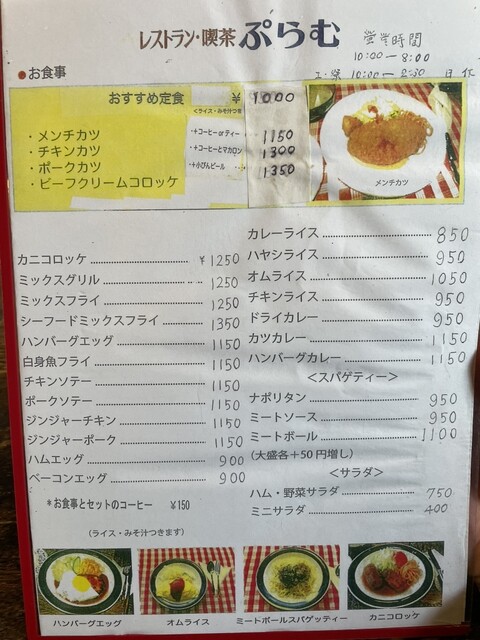 レストラン・喫茶 ぷらむ
営業時間
10:00－8:00
10:00－
日 休
●お食事
おすすめ定食 ¥1000
<ライス・みそ汁つき>
・メンチカツ
・チキンカツ
・ポークカツ
・ビーフクリームコロッケ
・+コーヒーorティー 1150
・+コーヒーとマカロン 1300
・+小びんビール 1350
メンチカツ
カニコロッケ ¥1250
ミックスグリル 1250
ミックスフライ 1250
シーフードミックスフライ 1350
ハンバーグエッグ 1150
白身魚フライ 1150
チキンソテー 1150
ポークソテー 1150
ジンジャーチキン 1150
ジンジャーポーク 1150
ハムエッグ 900
ベーコンエッグ 900
*お食事とセットのコーヒー ¥150
(ライス・みそ汁つきます)
カレーライス 850
ハヤシライス 950
オムライス 1050
チキンライス 950
ドライカレー 950
カツカレー 1150
ハンバーグカレー 1150
<スパゲティー>
ナポリタン 950
ミートソース 950
ミートボール 1100
(大盛各+50円増し)
<サラダ>
ハム・野菜サラダ 750
ミニサラダ 400
ハンバーグエッグ
オムライス
ミートボールスパゲッティー
カニコロッケ